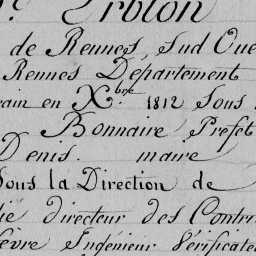 Orblon
de Rennes, Sud Oue
Rennes Département
rain en Xbre 1812 Sous
Bonnaire Préfet
Denis. maire
Sous la Direction de
directeur des Contri
èvre Ingénieur Vérificate